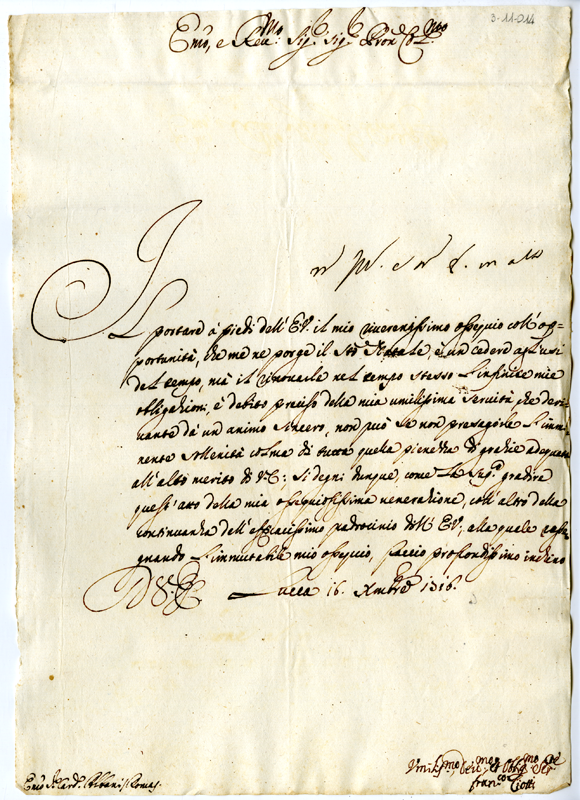 3-11-214
Emo, e Reu.mo Sig.r Sig.r Pron Col.mo
Il portare à piedi dell' E.V. il mio riuerentissimo ossequio coll' op-
portunità, che me ne porge il Sto Natale, è un cedere agl' usi
del tempo, mà il
nel tempo stesso l' infinite mie
obligazioni, è debito preciso della mia umilissima seruitù, che deri-
uante da un animo sincero, non può se non presagirle l' immi-
nente sollenità colma di tutta quella pienezza di grazie adequata
all' alto merito di V.E: Si degni dunque, come La sup.o gradire
quest' atto della mia ossequiosissima uenerazione, coll' altro della
continuanza dell' efficacissimo padrocinio dell' E.V., alla quale rasse-
gnando l' immutabile mio ossequio, faccio profondissimo inchino
D. V. E. Lucca 16. Xmbre 1716.
Emo Sr. Card. Albani Roma.
Umiliss.mo, Deu.mo et Obblig.mo Ser.
Fran.co Ciotti